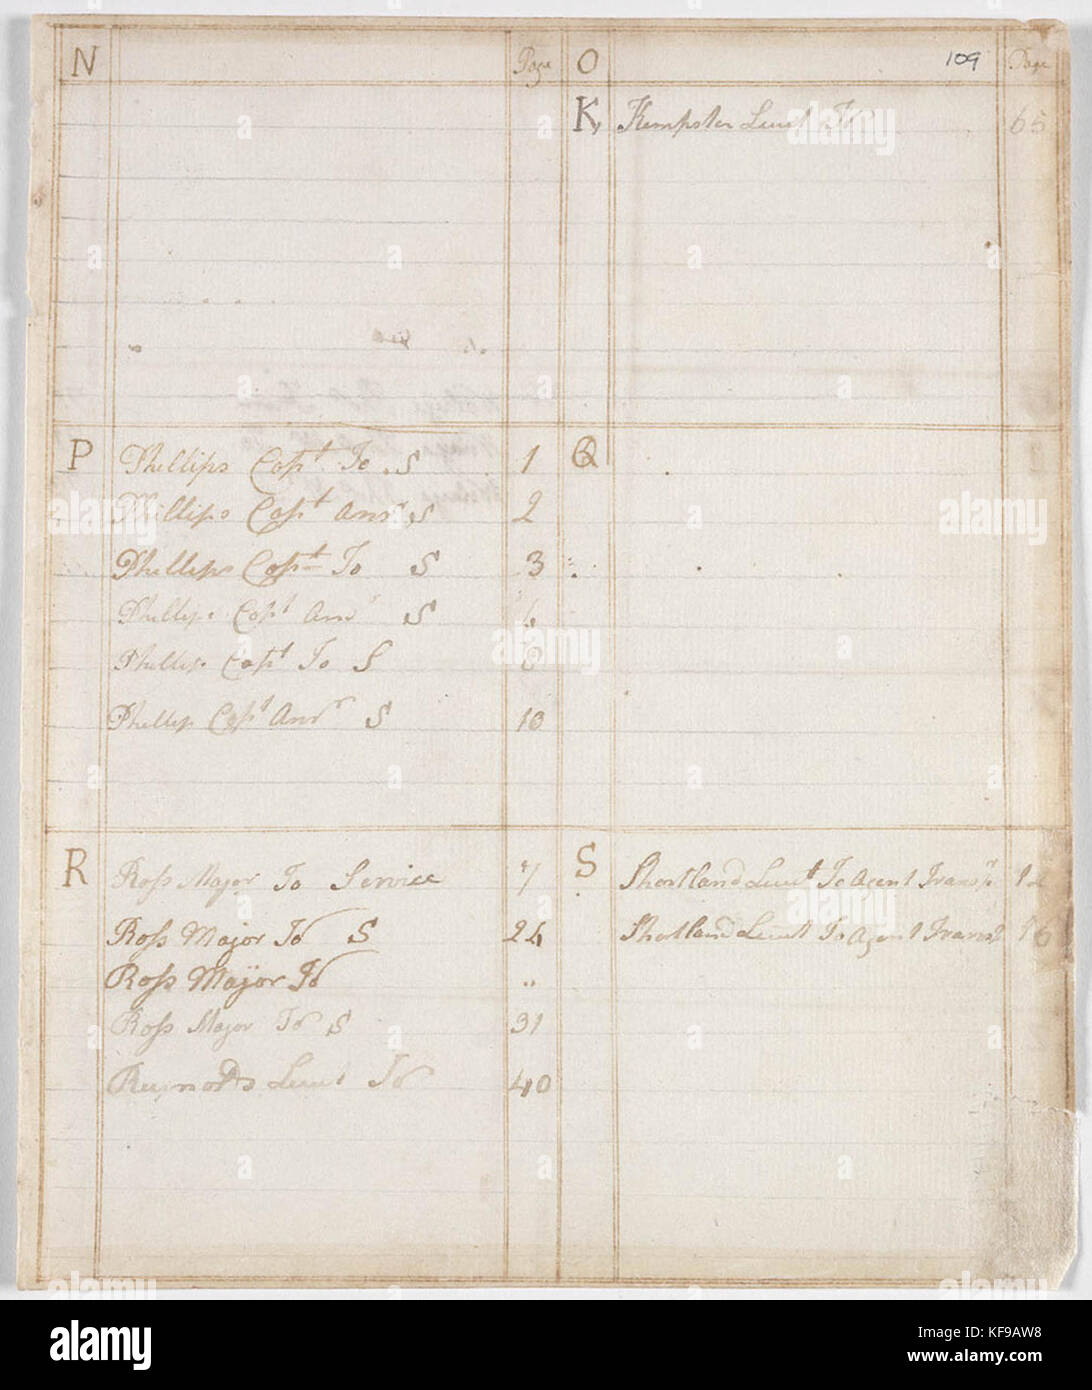 N Page O 109 Page
K Kempster Lieut To 65
P Phillips Capt To S 1 Q
Phillips Capt Ansr S 2
Phillips Capt To S 3
Phillips Capt Ansr S
Phillip Capt To S
Phillip Capt Ansr S 10
R Ross Major To Service 7 S Shortland Lieut To Agent Transpts
Ross Major To S 24 Shortland Lieut To Agent Transt 16
Ross Major To "
Ross Major To S 31
Reynolds Lieut To 40
alamy
Image ID: KF9AW8
www.alamy.com